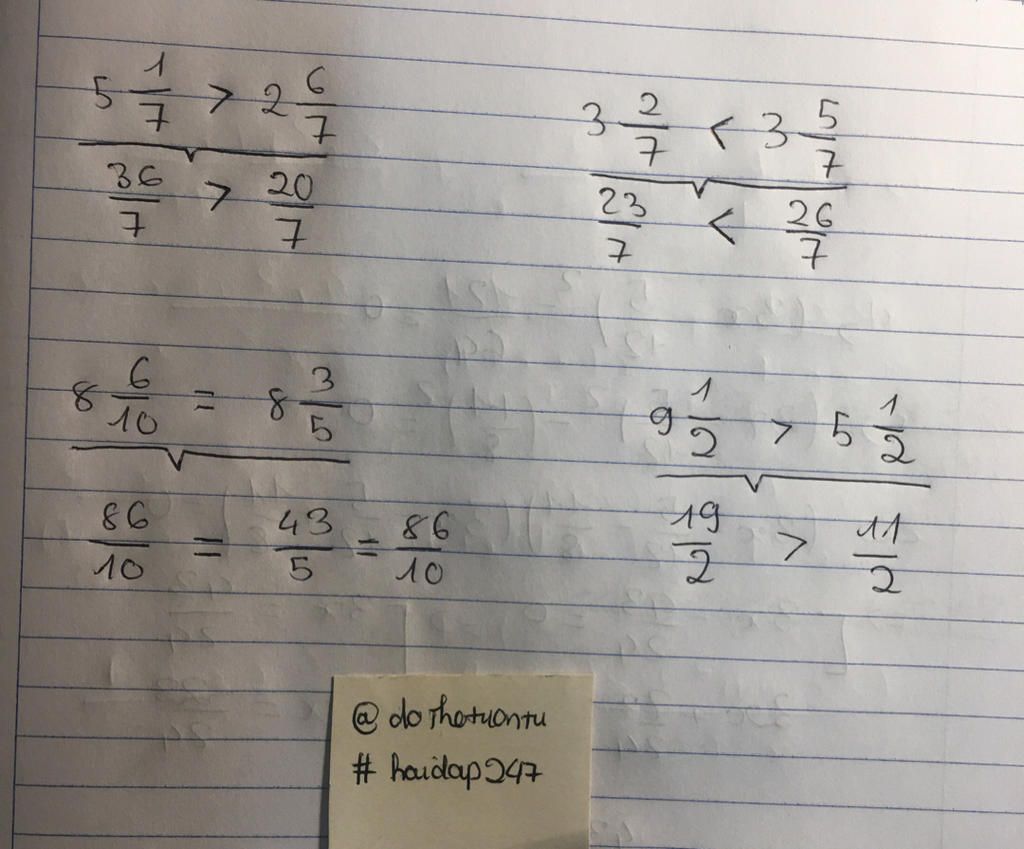 5 1/7 > 2 6/7
36/7 > 20/7
3 2/7 < 3 5/7
23/7 < 26/7
8 6/10 = 8 3/5
86/10 = 43/5 = 86/10
9 1/2 > 5 1/2
19/2 > 11/2
# hoidap247